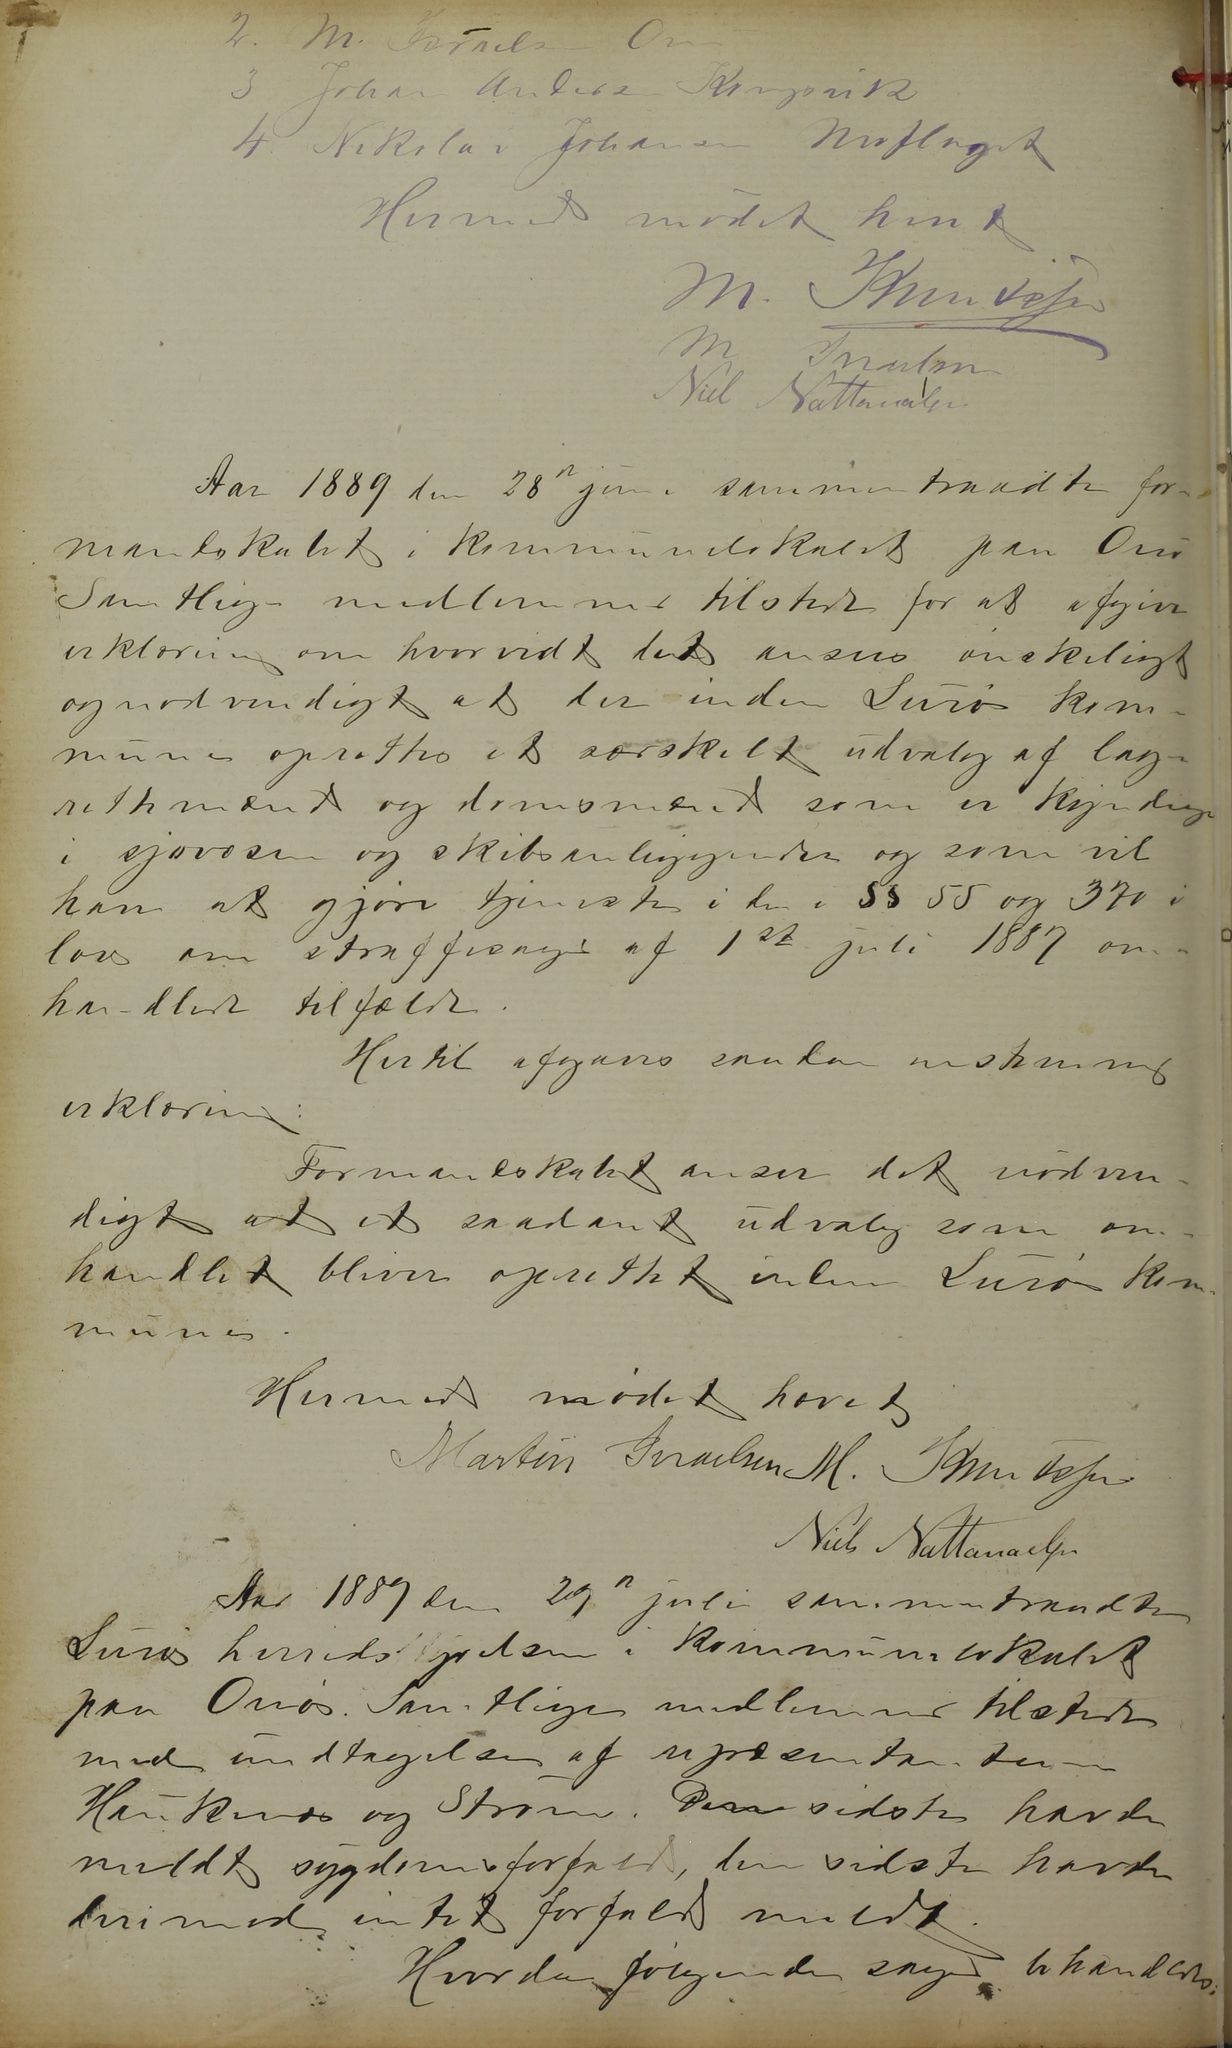 2. M. Israels Onø
3 Johan Anders Kongsvik
4. Nikolai Johansen
Hermed mødet hævet
M. Knudssen
M Israelsen
Niels Nattanaelsen
Aar 1889 den 28n juni sammentraadte for-
mandskabet i kommunelokalet paa Onø
Samtlige medlemmer tilstede for at afgive
erklæring om hvorvidt det ansees ønskeligt
og nødvendigt at der inden Lurø kom-
mune oprettes et særskilt udvalg af lag-
rettemænd og domsmænd som er kyndige
i sjøvæsen og skibsanliggender og som vil
have at gjøre tjeneste i de i §§ 55 og 370 i
lov om straffesager af 1st juli 1887 om-
handlede tilfælde.
Hertil afgaves saadan enstemmig
erklæring:
Formandskabet anser det nødven-
digt at et saadant udvalg som om-
handlet bliver oprettet inden Lurø kom-
mune.
Hermed mødet hævet
Martin Israelsen M. Knudssen
Niels Nattanaelsen
Aar 1889 den 29n juli sammentraadte
Lurø herredsstyrelse i kommunelokalet
paa Onø. Samtlige medlemmer tilstede
med undtagelse af repræsentanterne
Haukenæs og Strøm. sidste havde
meldt sygdomsforfald, den sidste havde
derimod intet forfald meldt.
Hvordan følgende sager behandledes: